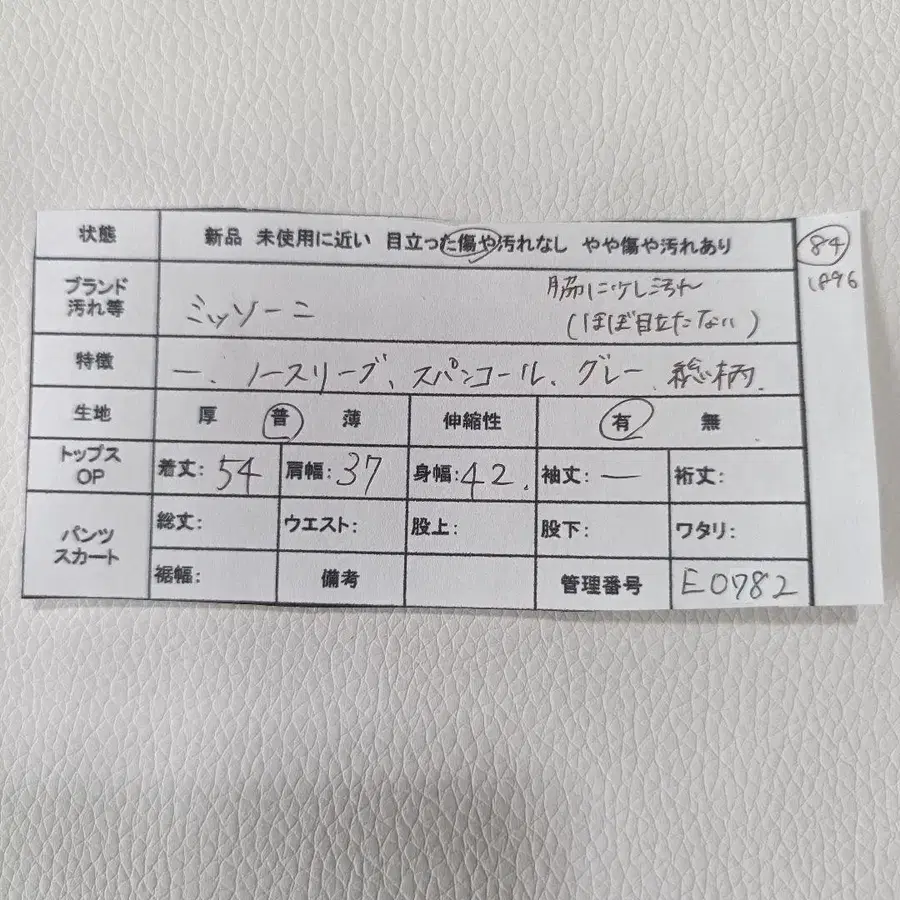 状態 新品 未使用に近い 目立った傷や汚れなし やや傷や汚れあり 84
1896
ブランド 汚れ等 ミッソーニ 脇に少し汚れ
(ほぼ目立たない)
特徴 一、ノースリーブ、スパンコール、グレー、総柄、
生地 厚 普 薄 伸縮性 有 無
トップス OP 着丈: 54 肩幅: 37 身幅: 42. 袖丈: — 裄丈:
パンツ スカート 総丈: ウエスト: 股上: 股下: ワタリ:
裾幅: 備考 管理番号 E0782